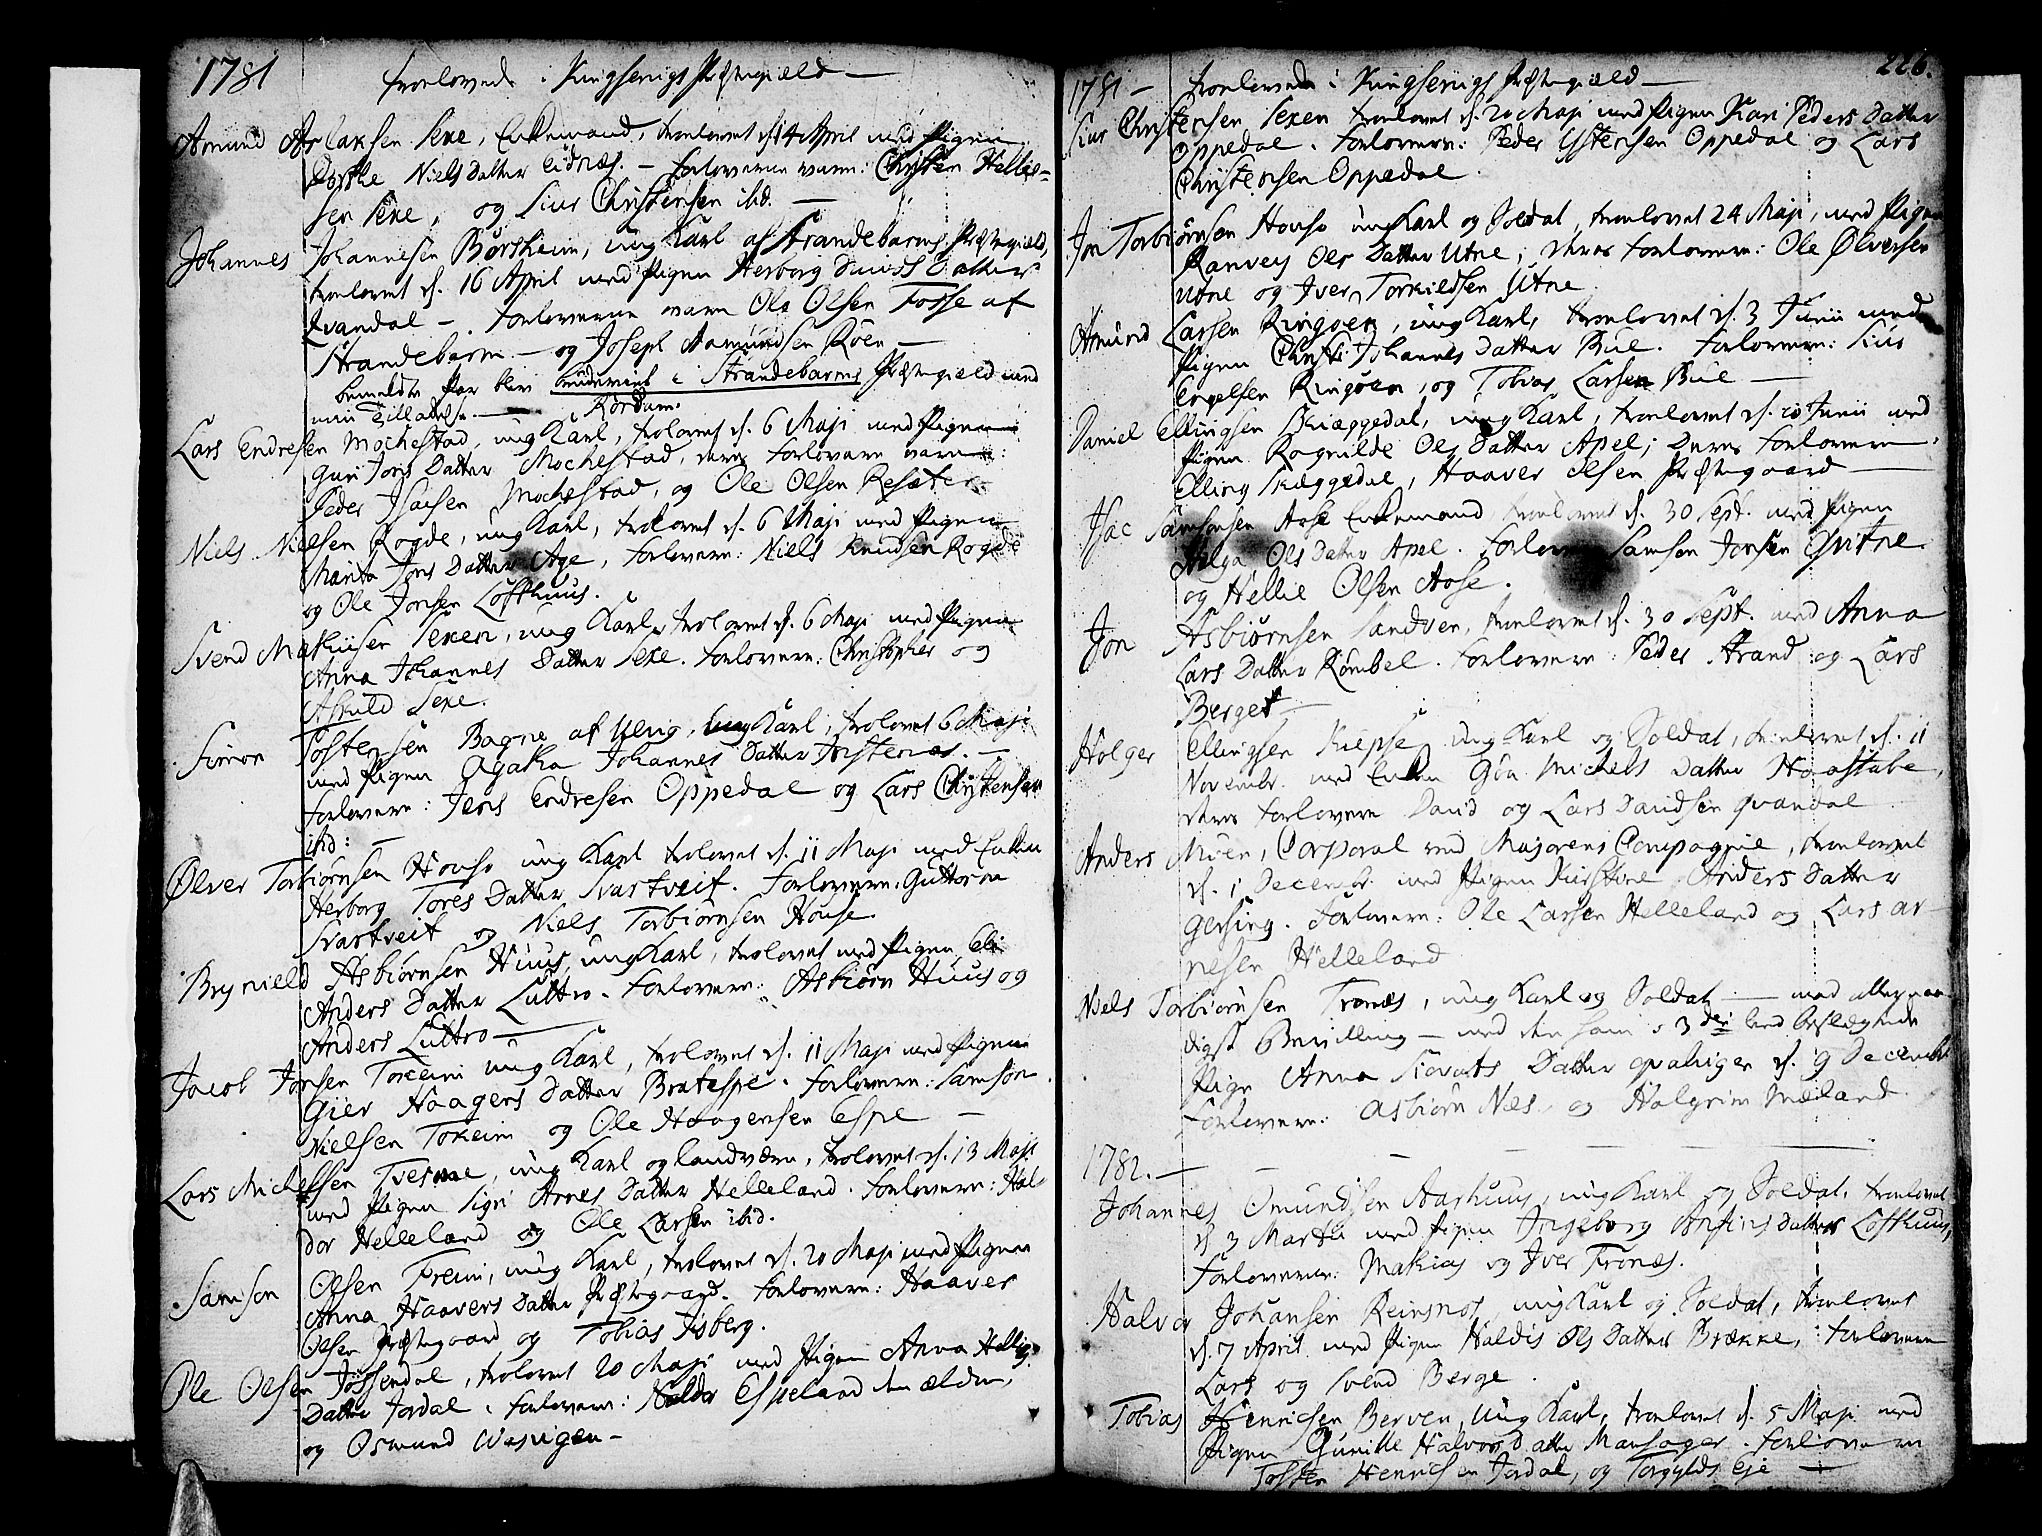 1781 troelovede i Kingservigs Præstegiæld —
Amund Aslaksen Sexe, Enkemand, troelovet d. 14 April med Pigen
Dorthe Niels Datter Eidnæs. — Forloverne vare: Christen Hellie-
sen Sexe, og Siur Christensen ibd. —
Johannes Johannesen Børsheim, ung Karl af Strandebarms Præstegiæld,
troelovet d. 16 April med Pigen Herborg Datter
Qvandal —. Forloverne vare Ole Olsen Fosse af
Strandebarm — og Joseph Aamundsen Røen —
bemeldte Par blev i Strandebarms Præstegiæld med
min Tilladelse. —
Lars Endresen Mochestad, ung Karl, trolovet d. 6 Maji med Pigen
Guri Jons Datter Mochestad, deres Forlovere vare:
Peder Isacsen Mochestad, og Ole Olsen Resæter
Niels Nielsen Rogde, ung Karl, trolovet d. 6 Maji med Pigen
Marita Jons Datter Age, Forlovere: Niels Knudsen Rogde
og Ole Jonsen Lofthuus.
Svend Mathisen Sexen, ung Karl, trolovet d. 6 Maji med Pigen
Anna Johannes Datter Sexe. Forlovere: Christopher og
Askild Sexe.
Simon Tostensen Bagne af Ulvig, ung Karl, trolovet 6 Maji
med Pigen Agata Johannes Datter —
Forlovere: Jens Endresen Oppedal og Lars Christensen
ibid: —
Ølver Torbiørnsen Houso ung Karl trolovet d. 11 Maji med Enken
Herborg Tores Datter Svartveit. Forlovere: Guttorm
Svartveit og Niels Torbiørnsen House.
Brynield Asbiørnsen Huus, ung Karl, trolovet med Pigen
Anders Datter Luttro. Forlovere: Asbiørn Huus og
Anders Luttro —
Jacob Jonsen Tokeim ung Karl, trolovet d. 11 Maji med Pigen
Gier Haagens Datter Bratespe. Forlovere: Samson
Nielsen Tokeim og Ole Haagensen Espe —
Lars Michelsen Tvesme, ung Karl og landværn, trolovet d. 13 Maji
med Pigen Sigri Arnes Datter Helleland. Forlovere: Hal-
dor Helleland og Ole Larsen ibid.
Samson Olsen Freim, ung Karl, trolovet d. 20 Maji med Pigen
Anna Haavers Datter Præstegaard. Forlovere: Haaver
Olsen Præstegaard og Tobias Isberg.
Ole Olsen Jøssendal, trolovet 20 Maji med Pigen Anna
Datter Jordal. Forlovere: Haldor Espeland den ældre,
og Osmund —
226.
1781 — troelovede i Kingservigs Præstegiæld —
Siur Christensen Sexen troelovet d. 20 Maji med Pigen Kari Peders Datter
Oppedal. Forlovere: Peder Ystensen Oppedal og Lars
Christensen Oppedal.
Jon Torbiørnsen Houso ung Karl og Soldat, troelovet 24 Maji, med Pigen
Ranvey Ols Datter Utne; deres Forlovere: Ole Ølversen
Utne og Iver Torkieldsen Utne.
Amund Larsen Ringøen, ung Karl, troelovet d. 3 Junii med
Pigen Christi Johannes Datter Bue. Forlovere: Siur
Engelsen Ringøen, og Tobias Larsen Bue —
Daniel Ellingsen Skiæggedal, ung Karl, troelovet d. 10 Junii med
Pigen Ragnilde Ols Datter Apel; Deres Forlovere
Elling Skæggedal, Haaver Olsen Præstegaard —
Isac Samsonsen Aase Enkemand, troelovet d. 30 Sept. med Pigen
Helga Ols Datter Apel. Samson Jonsen Qvitne
og Hellie Olsen Aase.
Jon Asbiørnsen Sandven, troelovet d. 30 Sept. med Anna
Lars Datter Rømbel. Forlovere: Peder Strand og Lars
Berget —
Holger Ellingsen Kiepse, ung Karl og Soldat, troelovet d. 11
Novembr. med Enken Gøa Michels Datter Hofstabe,
deres Forlovere David og Lars Davidsen Qvandal
Anders Moen, Corporal ved Majorens Compagnie, troelovet
d. 1 Decembr. med Pigen Kirstine Anders Datter
Gersing. Forlovere: Ole Larsen Helleland og Lars Ar-
nesen Helleland
Niels Torbiørnsen Tronæs, ung Karl og Soldat — med allernaa-
digst Bevilling — med den ham i 3die led beslægtede
Pige Anna Siovats Datter d. 9 Decembr
Forlovere: Asbiørn Næs, og Halgrim Mæland.
1782. —
Johannes Omundsen Aarhuus, ung Karl og Soldat, troelovet
d. 3 Martii med Pigen Ingeborg Anfins Datter Lofthuus,
Forlovere: Mathias og Iver Tronæs.
Halvor Johansen Reinsnos, ung Karl og Soldat, troelovet
d. 7 April med Pigen Haldis Ols Datter Brække, Forlovere
Lars og Svend Berge.
Tobias Henricsen Berven, ung Karl, troelovet d. 5 Maji med
Pigen Gunille Halvors Datter Mansager. Forlovere
Tosten Henricsen Jordal, og Torgylds Eje —